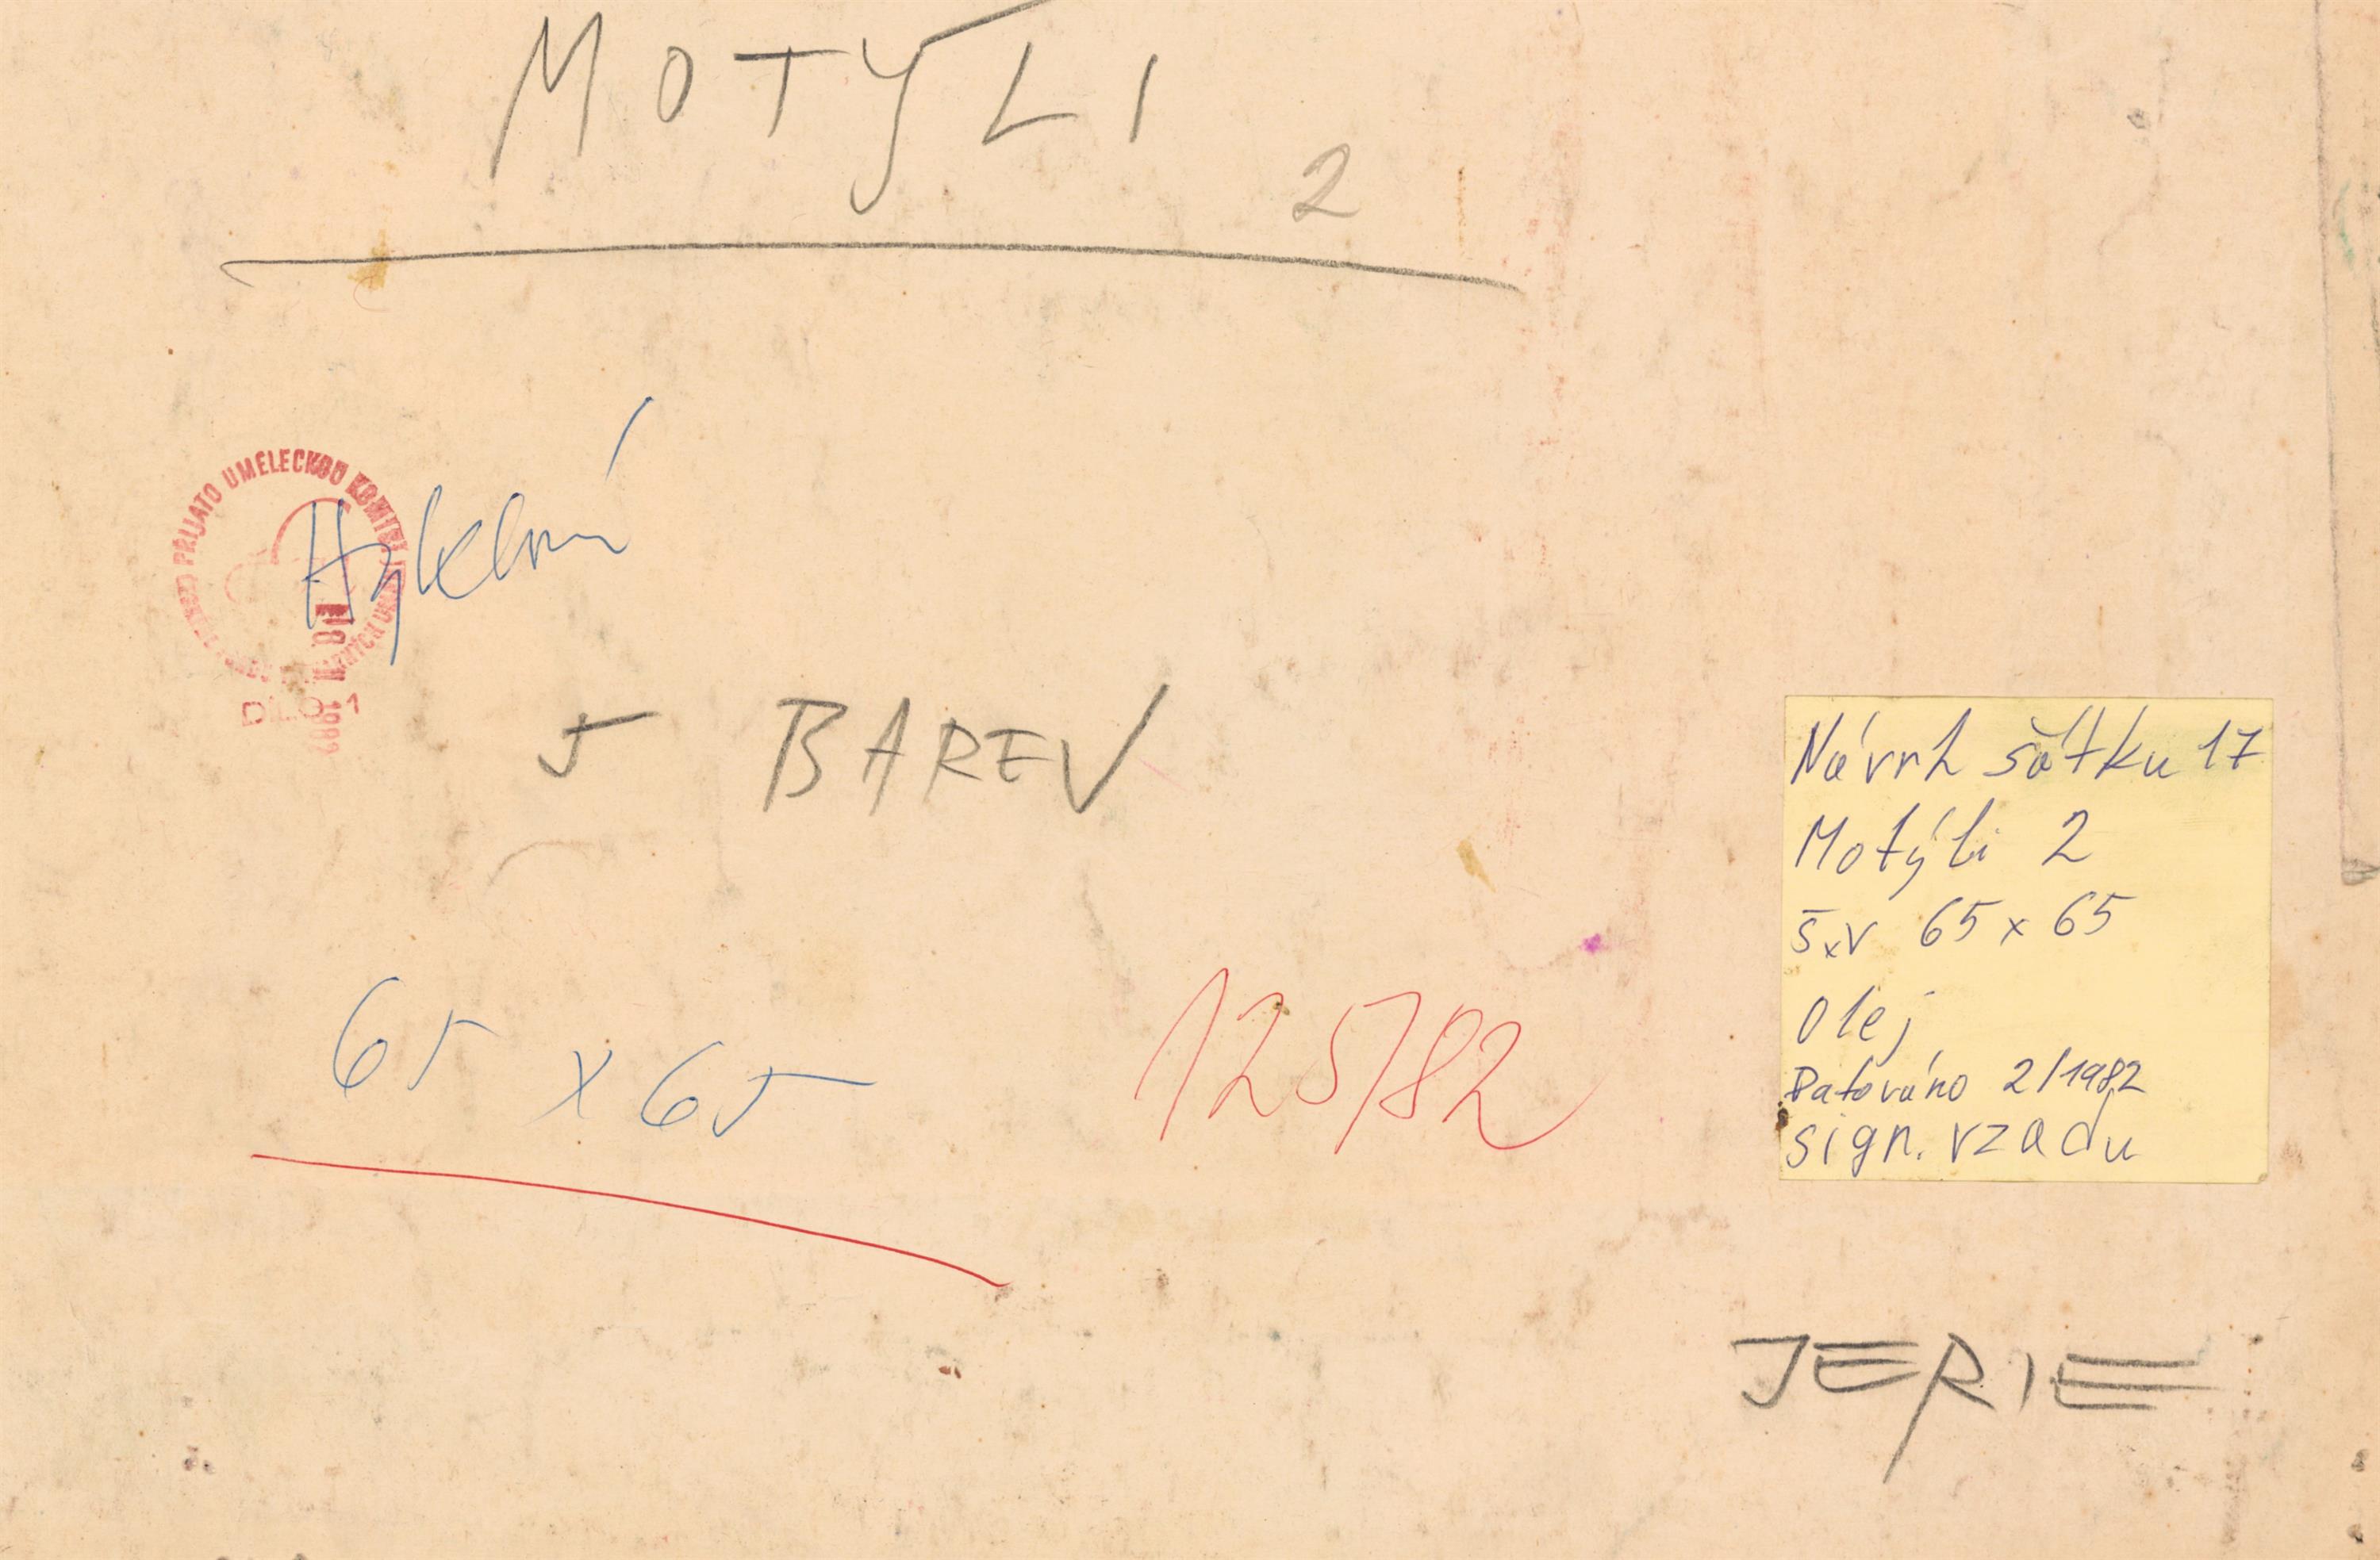 MOTYLI 2
PRIJATO UMELECKOU KOMISÍ
DÍLO 1
5 BAREV
65 x 65
125/82
Návrh šátku 17
Motýli 2
šxv 65 x 65
Olej
Datováno 2/1982
sign. vzadu
JERIE